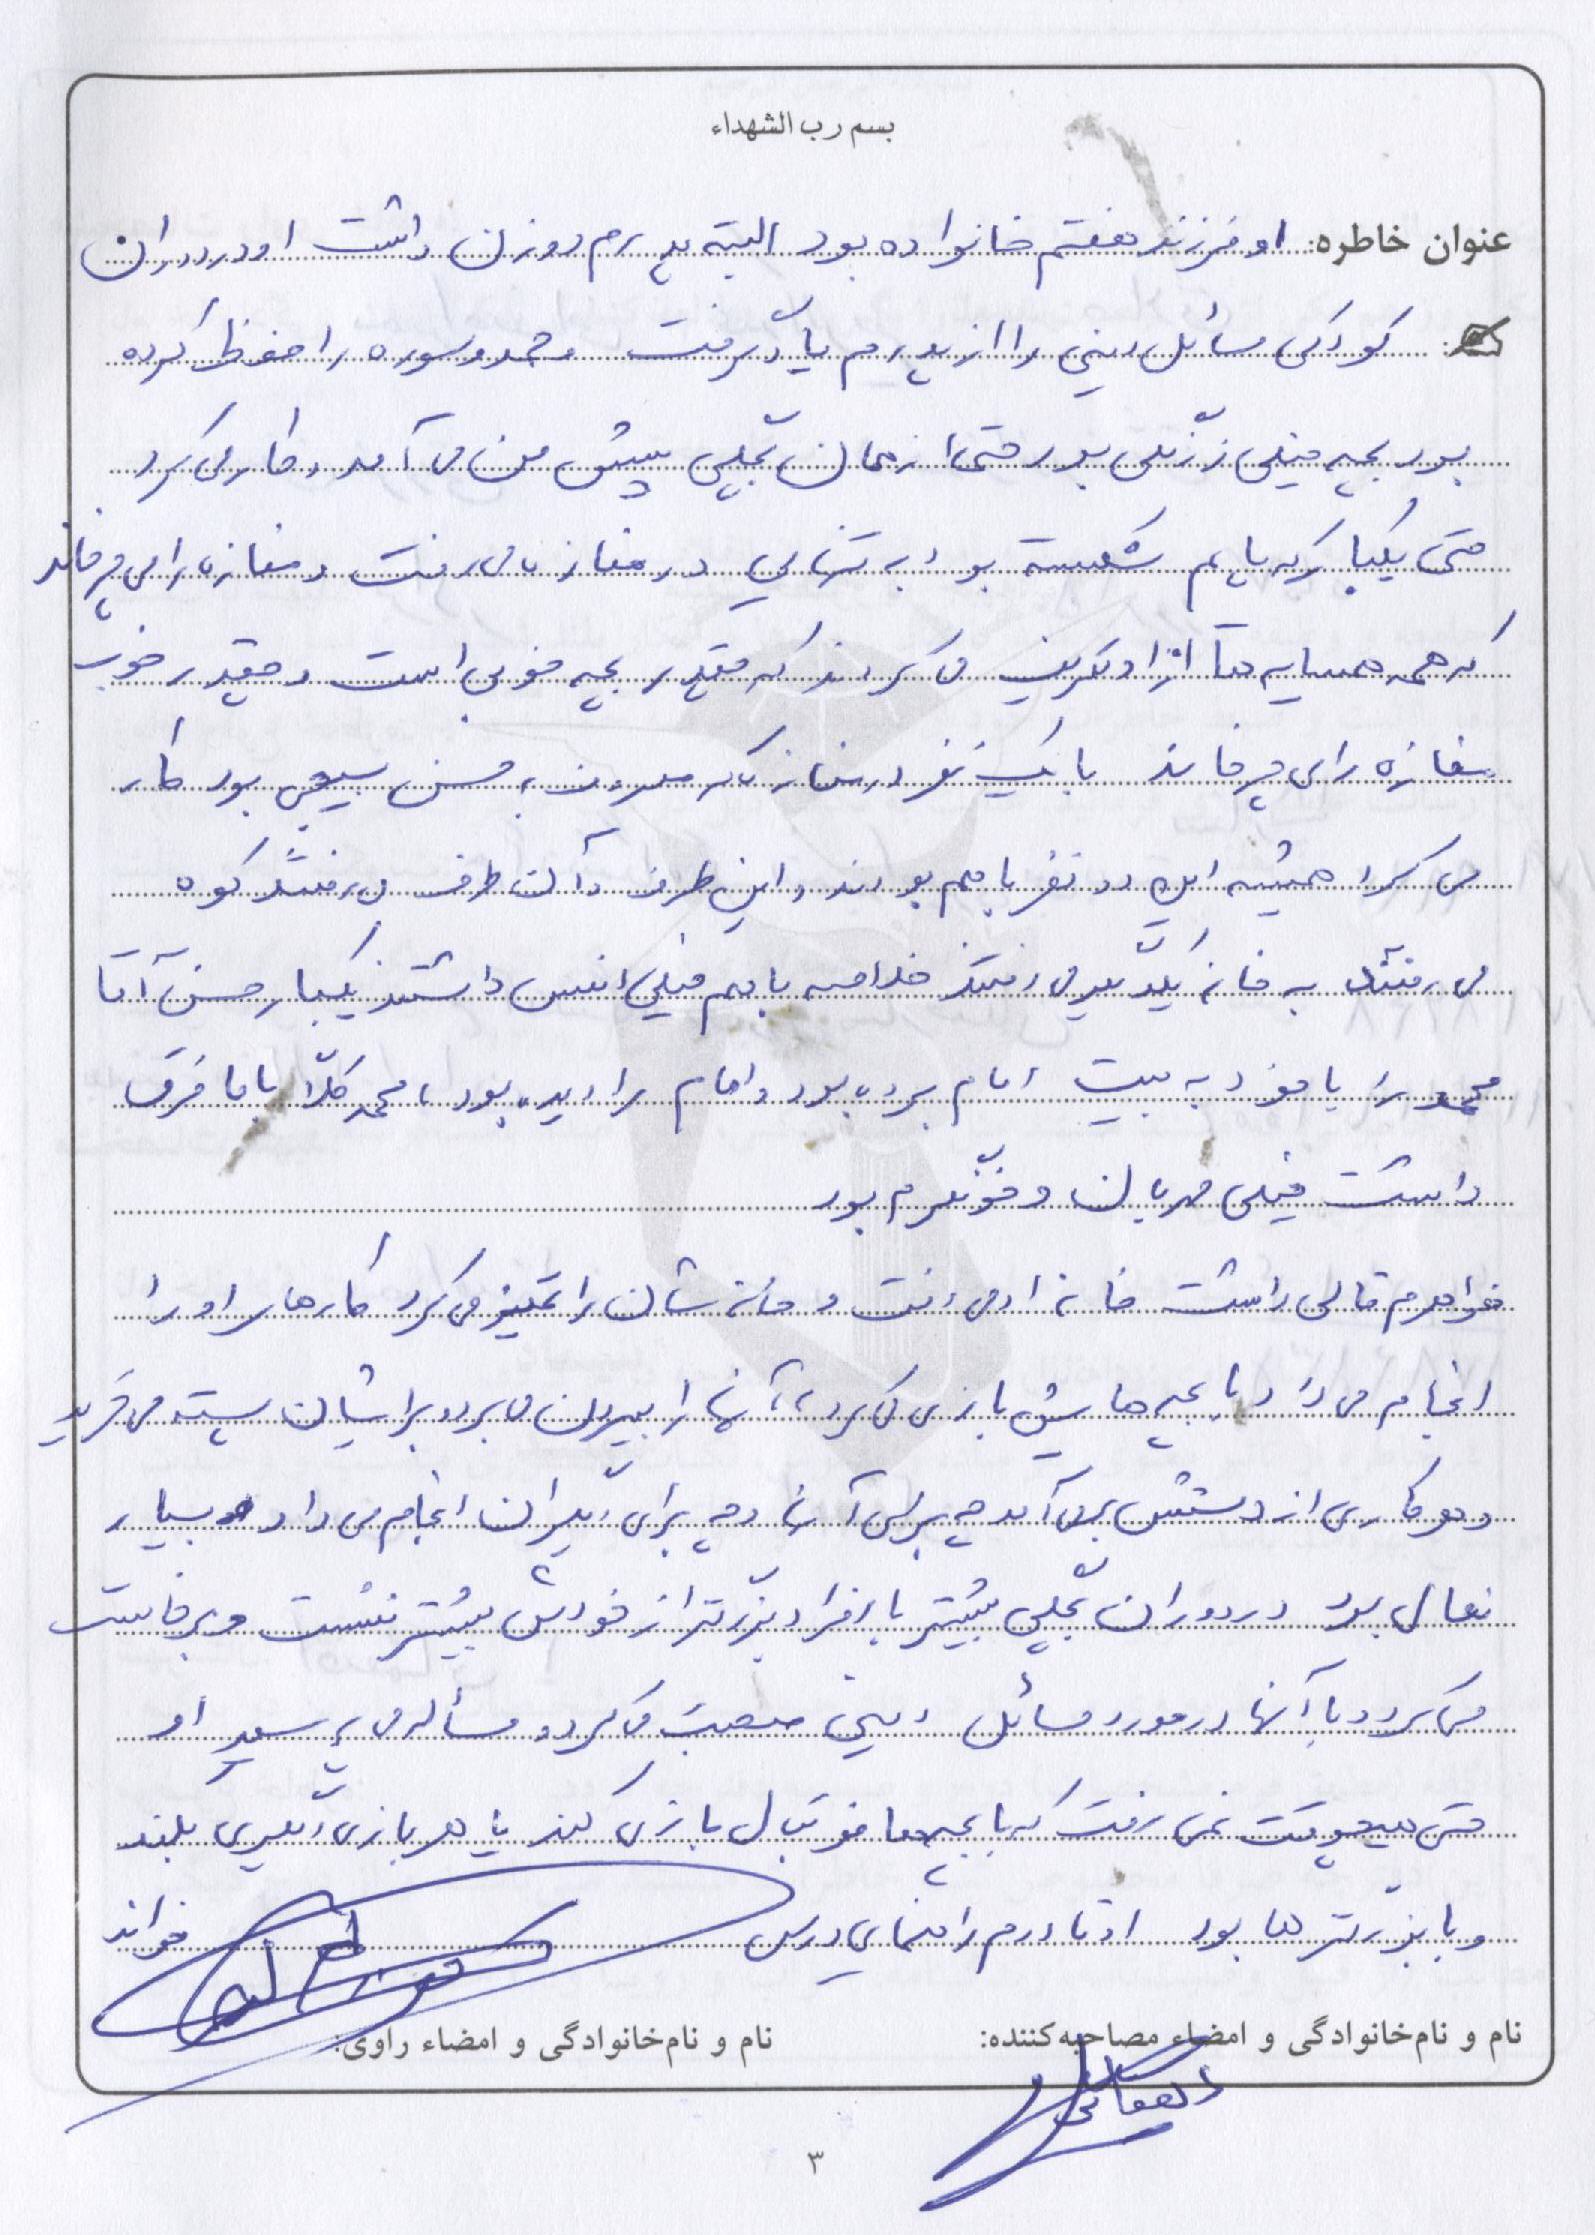 بسم رب الشهداء
عنوان خاطره: او فرزند هفتم خانواده بود البته پدرم دوزن داشت او در دوران
کودکی مسائل دینی را از پدرم یاد گرفت و حمد و سوره را حفظ کرده
بود بچه خیلی زرنگی بود حتی از همان بچگی پیش من می آمد و کار می کرد
حتی یکبار که پایم شکسته بود به تنهایی در مغازه می رفت و مغازه را می چرخاند
که همه همسایه ها از او تعریف می کردند که چقدر بچه خوبی است و چقدر خوب
مغازه را می چرخاند با یک نفر در مغازه که معروف به حسن بسیجی بود کار
می کرد همیشه این دو نفر با هم بودند و این طرف و آن طرف می رفتند کوه
می رفتند به خانه یکدیگر می رفتند خلاصه با هم خیلی انس داشتند یکبار حسن آقا
محمد را با خود به بیت امام برده بود و امام را دیده بود، محمد کلاً با ما فرق
داشت خیلی مهربان و خونگرم بود
خواهرم قالی داشت خانه او می رفت و خانه شان را تمیز می کرد کارهای او را
انجام می داد با بچه هایش بازی می کرد، آنها را بیرون می برد و برایشان پسته می خرید
و هر کاری از دستش بر می آمد چه برای آنها و چه برای دیگران انجام می داد بسیار
فعال بود در دوران بچگی بیشتر با افراد بزرگتر از خودش بیشتر نشست و برخاست
می کرد و با آنها در مورد مسائل دینی صحبت می کرد و مسأله می پرسید او
حتی هیچوقت نمی رفت که با بچه ها فوتبال بازی کند یا هر بازی دیگری بلند
و با بزرگترها بود او تا دوم راهنمایی درس خواند
نام و نام‌خانوادگی و امضاء مصاحبه‌کننده:
نام و نام‌خانوادگی و امضاء راوی:
۳